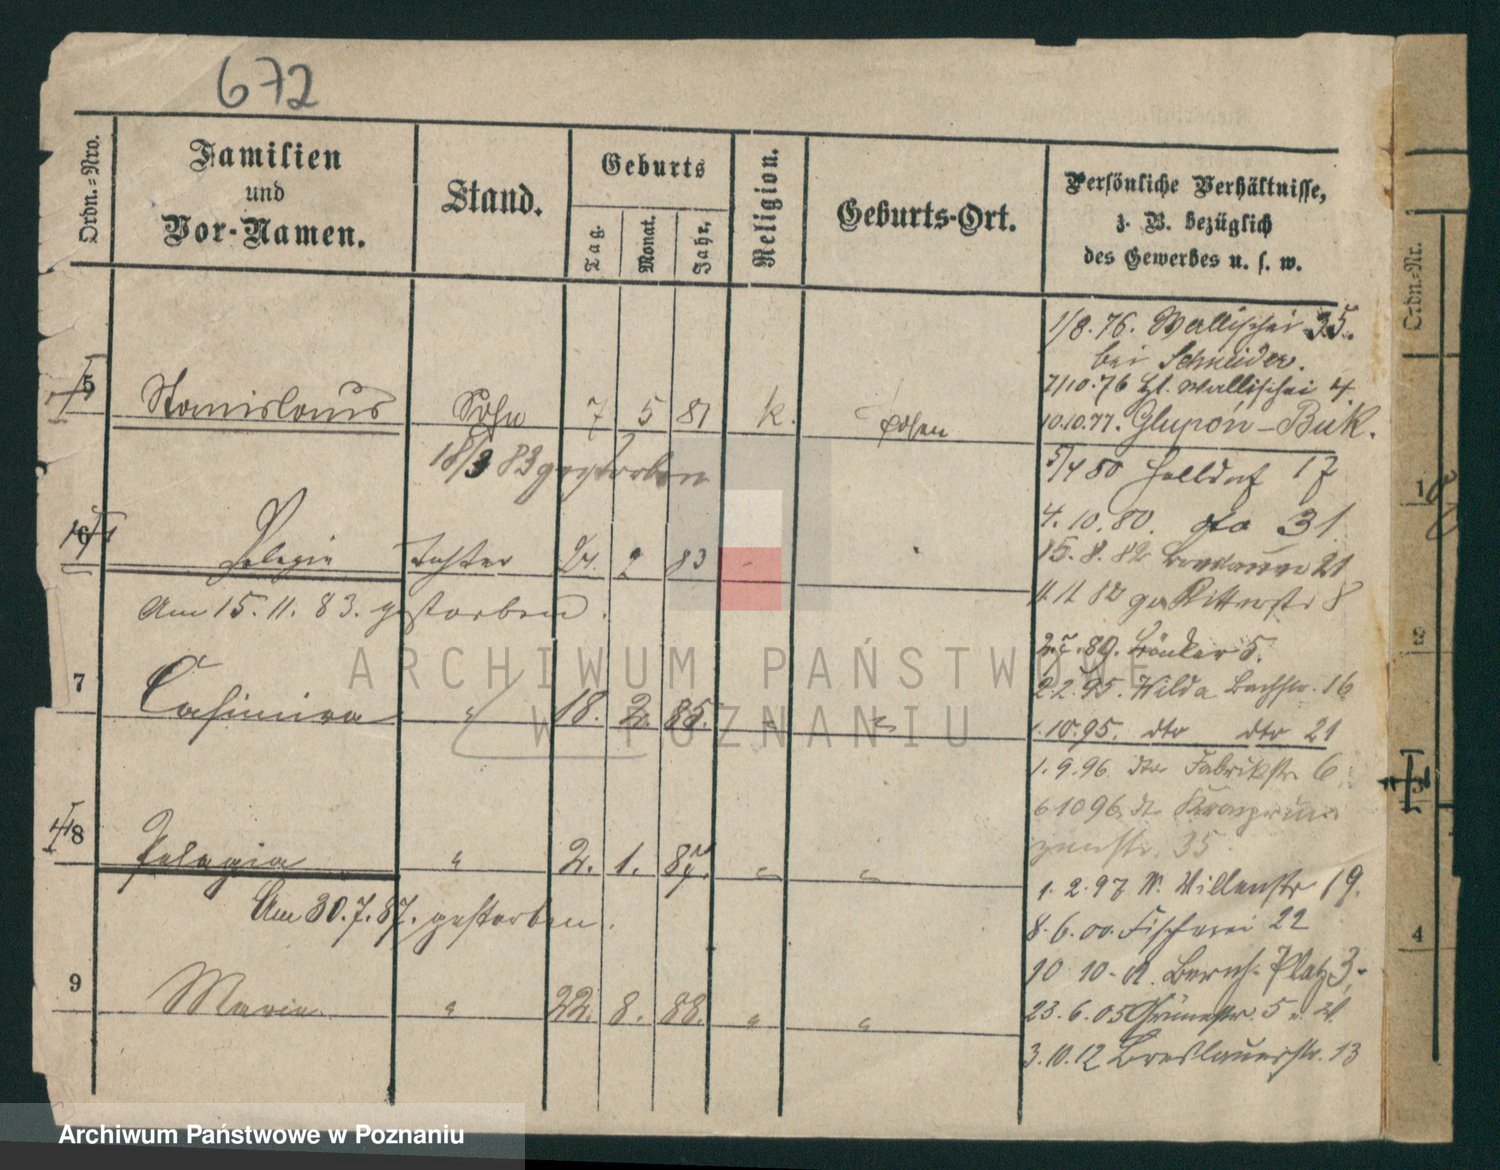 672
Ordn.-Nro.
Familien
und
Vor-Namen.
Stand.
Geburts
Tag.
Monat.
Jahr.
Religion.
Geburts-Ort.
Persönliche Verhältnisse,
z. B. bezüglich
des Gewerbes u. s. w.
5 Stanislaus Sohn 7 5 81 k. Posen
18/3 83 gestorben
6 Pelagia Tochter 24. 2 83
Am 15. 11. 83. gestorben.
7 Casimira " 18. 2. 85. " "
8 Pelagia " 2. 1. 87. " "
Am 30.7.87. gestorben.
9 Maria " 22. 8. 88. " "
1/8.76. Wallischei 35.
bei Schneider.
7/10.76 Wallischei 4.
10.10.77. Glupon - Buk.
5/4 80 Halldorf 17
4.10.80. dto 31
15.8.82 21
11 11 82 Ritterstr 8
89. 5.
2.2.95. Wilda Bachstr. 16
1.10.95. dto dto 21
1.9.96. dto Fabrikstr. 6
6 10 96 dto Kronprin
zenstr. 35
1.2.97 W. 19.
8.6.00. Fischerei 22
10 10 Bernh. Platz 3.
23.6.05 Grünestr. 5
3.10.12 Breslauerstr. 13
Ordn.-Nr.
1
2
3
4
ARCHIWUM PAŃSTWOWE
W POZNANIU
Archiwum Państwowe w Poznaniu